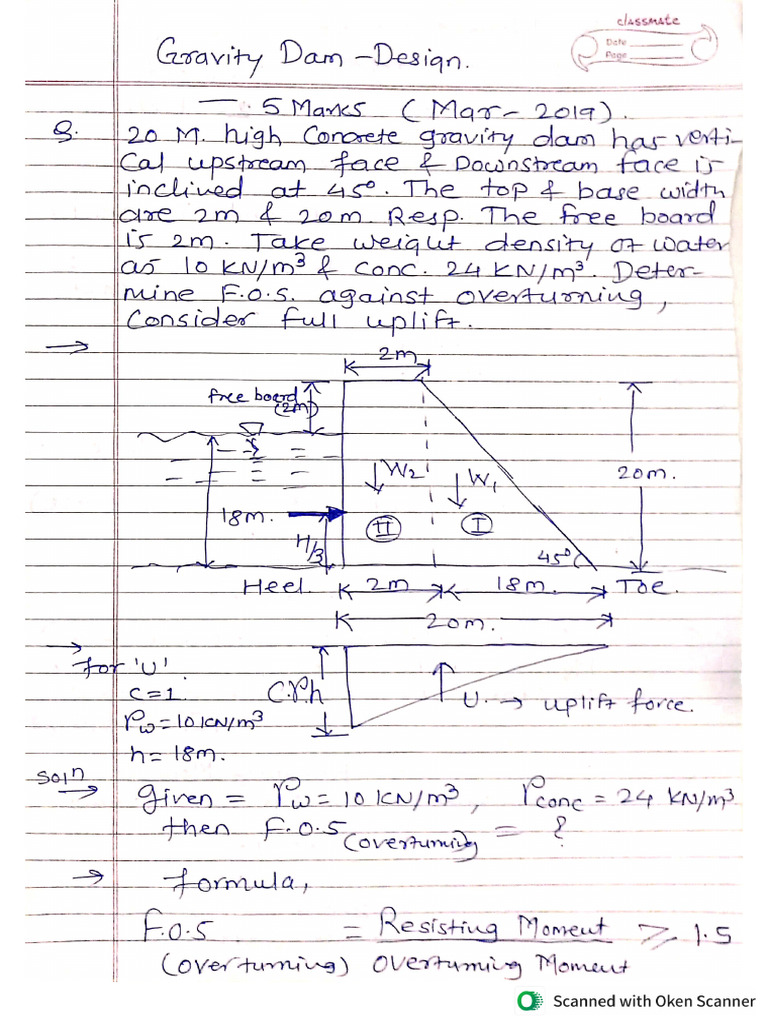 classmate
Date
Page
Gravity Dam - Design.
— 5 Marks (Mar - 2019).
Q. 20 M. high Concrete gravity dam has verti-
cal upstream face & Downstream face is
inclined at 45°. The top & base width
are 2m & 20m. Resp. The free board
is 2m. Take weight density of water
as 10 KN/m³ & Conc. 24 KN/m³. Deter-
mine F.O.S. against overturning,
Consider full uplift.
2m
free board
(2m)
W2
W1
20m.
18m.
H/3
II
I
45°
Heel.
2m
18m.
Toe.
20m.
for 'U'
c=1.
C.r.h
U. → uplift force.
rw = 10 KN/m³
h = 18m.
Soln
given = rw = 10 KN/m³, rconc = 24 KN/m³
then F.O.S (overturning) = ?
formula,
F.O.S = Resisting Moment ≥ 1.5
(overturning) overturning Moment
Scanned with Oken Scanner